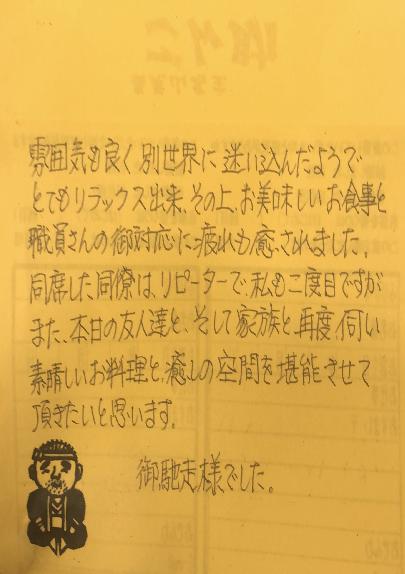 雰囲気も良く別世界に迷い込んだようで
とてもリラックス出来、その上、お美味しいお食事と
職員さんの御対応に疲れも癒されました。
同席した同僚は、リピーターで、私も二度目ですが
また、本日の友人達と、そして家族と、再度、伺い
素晴しいお料理と、癒しの空間を堪能させて
頂きたいと思います。
御馳走様でした。